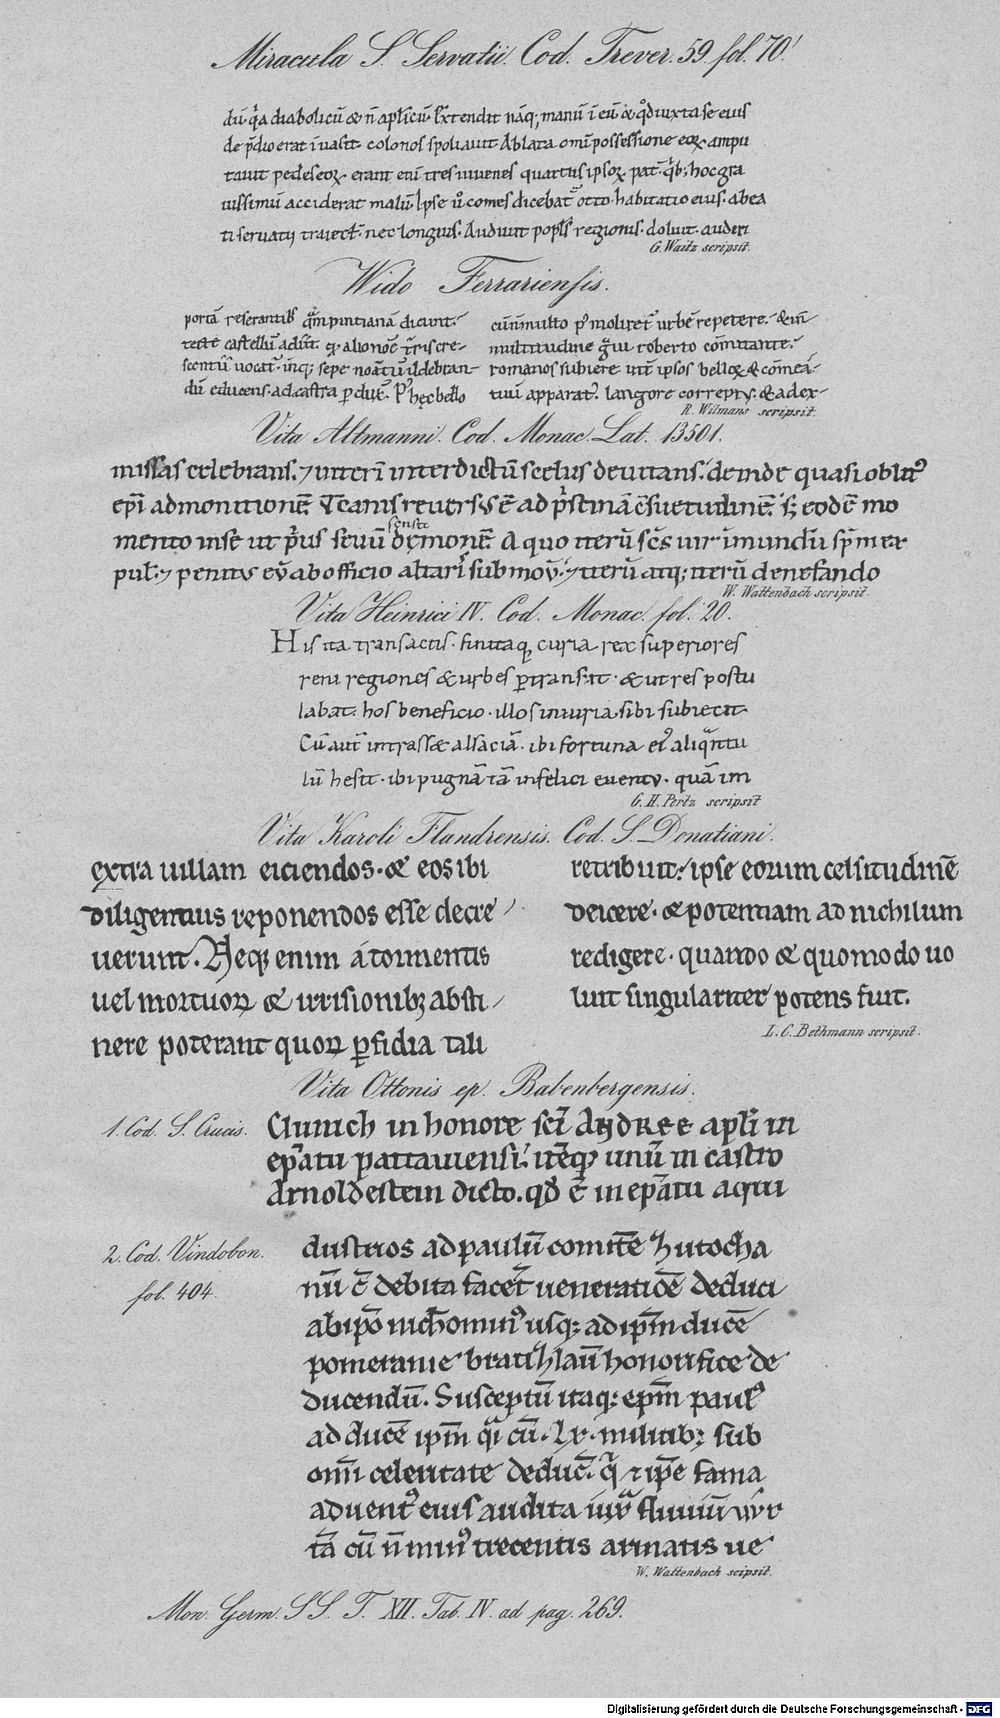 Miracula S. Servatii. Cod. Trever. 59. fol. 70'
dū q̄a diabolicū & n̄ aplicū. Extendit nāq; manū ī eū & qd iuxta se eius
de p̄dio erat īvasit. colonos spoliavit. Ablata omī possessione eoꝝ ampu
tavit pedes eoꝝ. erant enī tres iuvenes quartus ipsoꝝ pat̄. qb; hoc gra
vissimū acciderat malū. Ipse ů comes dicebat̄ otto. habitatio eius. abea
ti servatij traiect̄. nec longius. Audivit popls regionis. doluit. auderi
G. Waitz scripsit.
Wido Ferrariensis.
portā reserantibs quā pincianā dicunt.
teste castellū adiit. q alionoē trīs cre-
scentii vocat̄. inq; sepe noātū ildebran-
dū educens. ad castra pdux̄. P' hec bello
cū n̄ multo p' moliret̄ urbē repetere. & eū
multitudine gvi roberto comitante.
romanos subiere utī ipsos belloꝝ & comeā-
tuū apparat'. langore correptꝰ. & adex-
R. Wilmans scripsit.
Vita Altmanni. Cod. Monac. Lat. 13501.
missas celebrans. ⁊ utteri interdictū scelus devitans. deinde quasi oblitꝰ
epī admonitionē. Teanis reversꝰ ē ad pstinā ꝯsuetudinē. s; eodē mo
senste
mento inse ut pus sevū demonē. A quo iterū scs vir inmundū spm ex
pul. ⁊ penitꝰ eū ab officio altaris submoū. ⁊ iterū atq; iterū de nefando
W. Wattenbach scripsit.
Vita Heinrici IV. Cod. Monac. fol. 20.
His ita transactis. finitaq, curia rex superiores
reni regiones & urbes ptransiit. & ut res postu
labat. hos beneficio. illos iniuria sibi subiecit.
Cū aut̄ intrass& alsaciā. ibi fortuna eiꝰ aliqntu
lū hesit. ibi pugnā tā infelici eventꝰ. quā im
G. H. Pertz scripsit
Vita Karoli Flandrensis. Cod. S. Donatiani.
extra uillam eiciendos. & eos ibi
diligentius reponendos esse decre
uerunt. Neqꝫ enim á tormentis
uel mortuoꝝ & irrisionibꝫ absti
nere poterant quoꝝ ꝑfidia tali
retribuit. ipse eorum celsitudinē
deicere. & potentiam ad nichilum
redigere. quando & quomodo uo
luit singulariter potens fuit.
L. C. Bethmann scripsit.
Vita Ottonis ep. Babenbergensis.
1. Cod. S. Crucis.
Clunich in honore scī Andree aplī in
epatu pattauiensi. itēqꝫ unū in castro
Arnoldestein dicto. qd ē in epatu aqui
2. Cod. Vindobon.
fol. 404.
dustrios ad paulū comitē hutocha
nū c̄ debita facet̄ ueneratiōe deduci
ab ipo nichominꝰ usqꝫ ad ipm ducē
pomeranie bratizhlaū honorifice de
ducendū. Susceptū itaqꝫ epm paulꝰ
ad ducē ipm qi cū. Lx. militibꝫ sub
omi celeritate deduc̄. q ⁊ ipe fama
aduentꝰ eius audita fluuiū
tā cū n minꝰ trecentis armatis ue
W. Wattenbach scipsit.
Mon. Germ. SS. T. XII. Tab. IV. ad pag. 269.
Digitalisierung gefördert durch die Deutsche Forschungsgemeinschaft - DFG